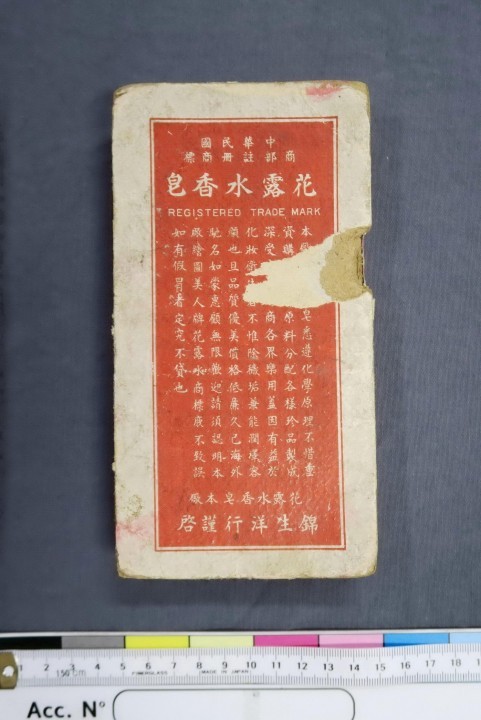 中華民國
商部註冊商標
花露水香皂
REGISTERED TRADE MARK
本 皂悉遵化學原理不惜重
資購 原料分配各樣珍品製成
深受 商各界樂用蓋因有益於
化妝 不惟除穢垢兼能潤澤容
顏也且品質優美價格低廉久已海外
馳名如蒙惠顧無限歡迎請須認明本
廠繪圖美人牌花露水商標庶不致誤
如有假冒者定究不貸也
花露水香皂本廠
錦生洋行謹啓
1 2 3 4 5 6 7 8 9 10 11 12 13 14 15 16 17 18
150cm FIBERGLASS MADE IN JAPAN
Acc. Nº